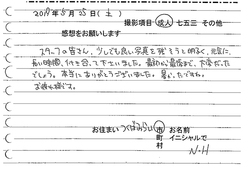 2019年5月25日(土)
撮影項目 成人 七五三 その他
感想をお願いします
スタッフの皆さん、少しでも良い写真を残そうと明るく、元気に、
長い時間、付き合って下さいました。最初から最後まで、大変だった
でしょう。本当にありがとうございました。暑い中ですね。
お疲れ様です。
お住まい つくばみらい 市町村 お名前 イニシャルで
N・H